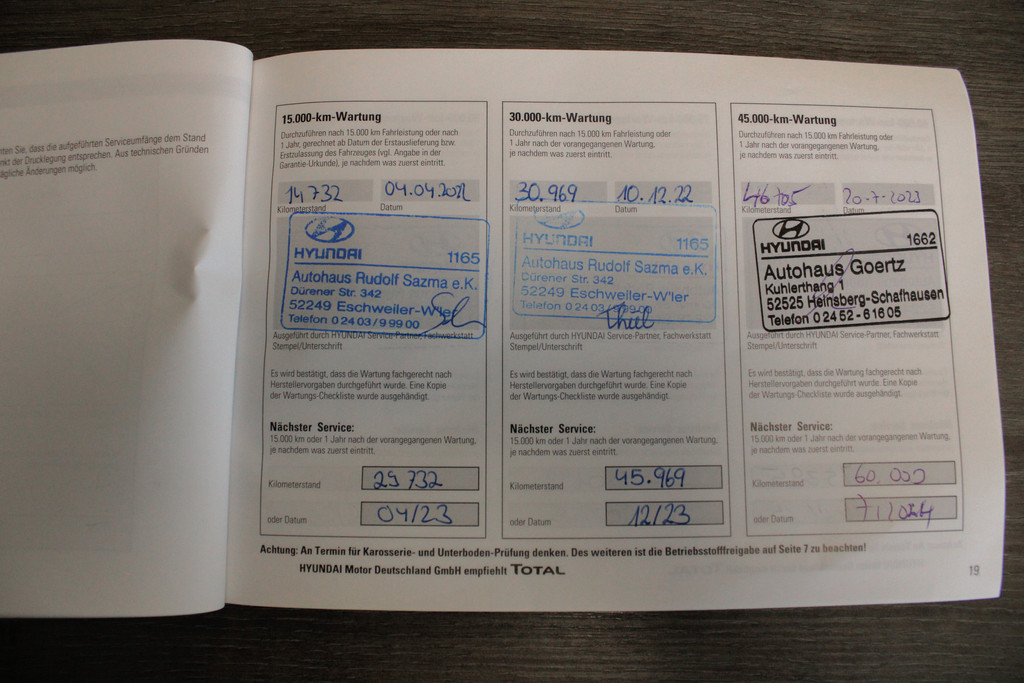 nten Sie, dass die aufgeführten Serviceumfänge dem Stand
nkt der Drucklegung entsprechen. Aus technischen Gründen
ägliche Änderungen möglich.
15.000-km-Wartung
Durchzuführen nach 15.000 km Fahrleistung oder nach
1 Jahr, gerechnet ab Datum der Erstauslieferung bzw.
Erstzulassung des Fahrzeuges (vgl. Angabe in der
Garantie-Urkunde), je nachdem was zuerst eintritt.
14 732 04.04.2022
Kilometerstand Datum
HYUNDAI 1165
Autohaus Rudolf Sazma e.K.
Dürener Str. 342
52249 Eschweiler-W'ler
Telefon 0 24 03 / 9 99 00
Ausgeführt durch HYUNDAI Service-Partner, Fachwerkstatt
Stempel/Unterschrift
Es wird bestätigt, dass die Wartung fachgerecht nach
Herstellervorgaben durchgeführt wurde. Eine Kopie
der Wartungs-Checkliste wurde ausgehändigt.
Nächster Service:
15.000 km oder 1 Jahr nach der vorangegangenen Wartung,
je nachdem was zuerst eintritt.
Kilometerstand 29 732
oder Datum 04/23
30.000-km-Wartung
Durchzuführen nach 15.000 km Fahrleistung oder
1 Jahr nach der vorangegangenen Wartung,
je nachdem was zuerst eintritt.
30.969 10.12.22
Kilometerstand Datum
HYUNDAI 1165
Autohaus Rudolf Sazma e.K.
Dürener Str. 342
52249 Eschweiler-W'ler
Telefon 0 24 03 / 9 99 00
Ausgeführt durch HYUNDAI Service-Partner, Fachwerkstatt
Stempel/Unterschrift
Es wird bestätigt, dass die Wartung fachgerecht nach
Herstellervorgaben durchgeführt wurde. Eine Kopie
der Wartungs-Checkliste wurde ausgehändigt.
Nächster Service:
15.000 km oder 1 Jahr nach der vorangegangenen Wartung,
je nachdem was zuerst eintritt.
Kilometerstand 45.969
oder Datum 12/23
45.000-km-Wartung
Durchzuführen nach 15.000 km Fahrleistung oder
1 Jahr nach der vorangegangenen Wartung,
je nachdem was zuerst eintritt.
46705 20-7-2023
Kilometerstand Datum
HYUNDAI 1662
Autohaus Goertz
Kuhlerthang 1
52525 Heinsberg-Schafhausen
Telefon 0 24 52 - 6 16 05
Ausgeführt durch HYUNDAI Service-Partner, Fachwerkstatt
Stempel/Unterschrift
Es wird bestätigt, dass die Wartung fachgerecht nach
Herstellervorgaben durchgeführt wurde. Eine Kopie
der Wartungs-Checkliste wurde ausgehändigt.
Nächster Service:
15.000 km oder 1 Jahr nach der vorangegangenen Wartung,
je nachdem was zuerst eintritt.
Kilometerstand 60.000
oder Datum 7/2024
Achtung: An Termin für Karosserie- und Unterboden-Prüfung denken. Des weiteren ist die Betriebsstofffreigabe auf Seite 7 zu beachten!
HYUNDAI Motor Deutschland GmbH empfiehlt TOTAL
19